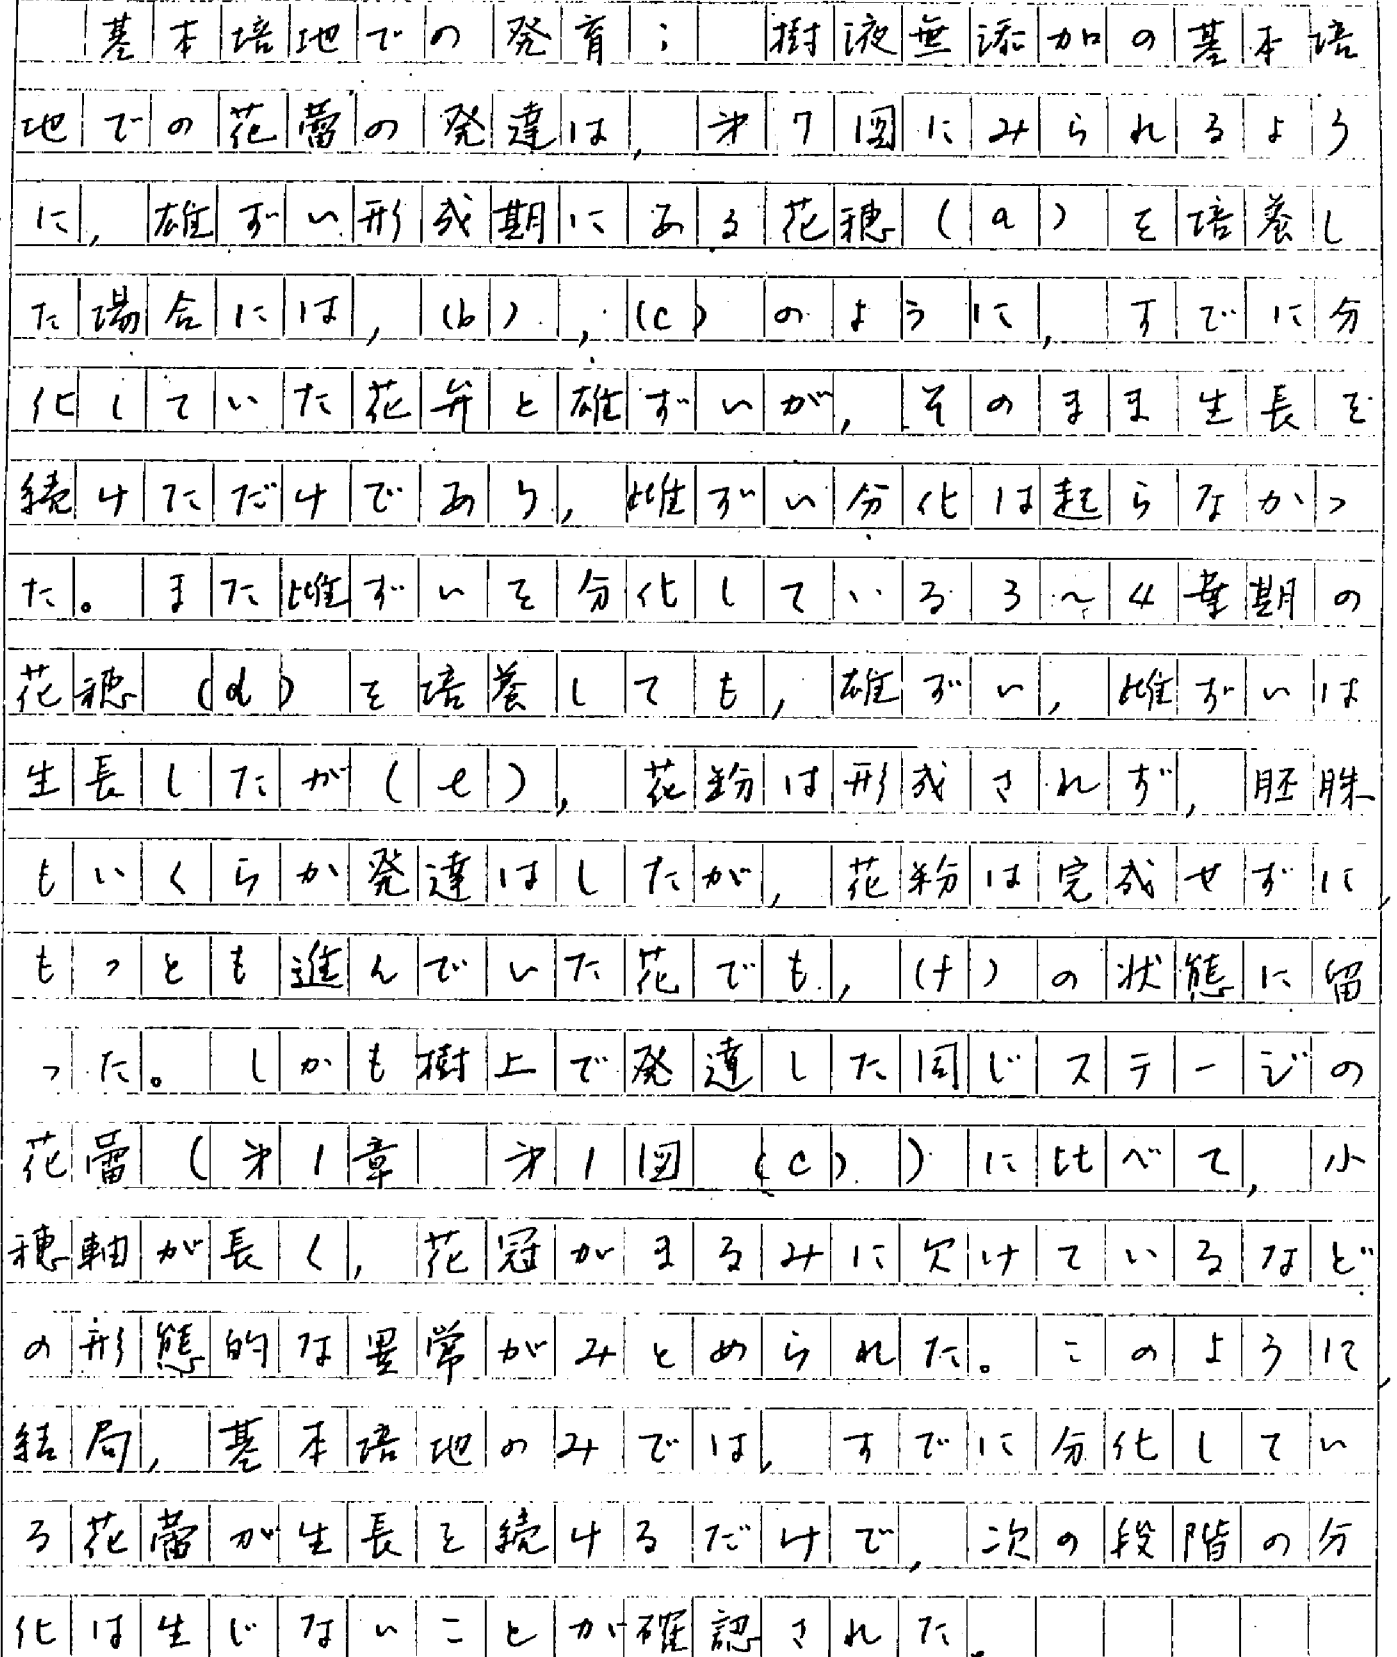 基本培地での発育；　樹液無添加の基本培
地での花蕾の発達は，才7図にみられるよう
に，雄ずい形成期にある花穂（a）を培養し
た場合には，（b），（c）のように，すでに分
化していた花弁と雄ずいが，そのまま生長を
続けただけであり，雌ずい分化は起らなかっ
た。また雌ずいを分化している3～4葉期の
花穂（d）を培養しても，雄ずい，雌ずいは
生長したが（e），花粉は形成されず，胚珠
もいくらか発達はしたが，花粉は完成せずに，
もっとも進んでいた花でも，（f）の状態に留
った。しかも樹上で発達した同じステージの
花蕾（才1章　才1図（c））に比べて，小
穂軸が長く，花冠がまるみに欠けているなど
の形態的な異常がみとめられた。このように，
結局，基本培地のみでは，すでに分化してい
る花蕾が生長を続けるだけで，次の段階の分
化は生じないことが確認された。